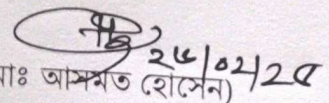 ২৫/০২/২৫
াঃ আসমত হোসেন)